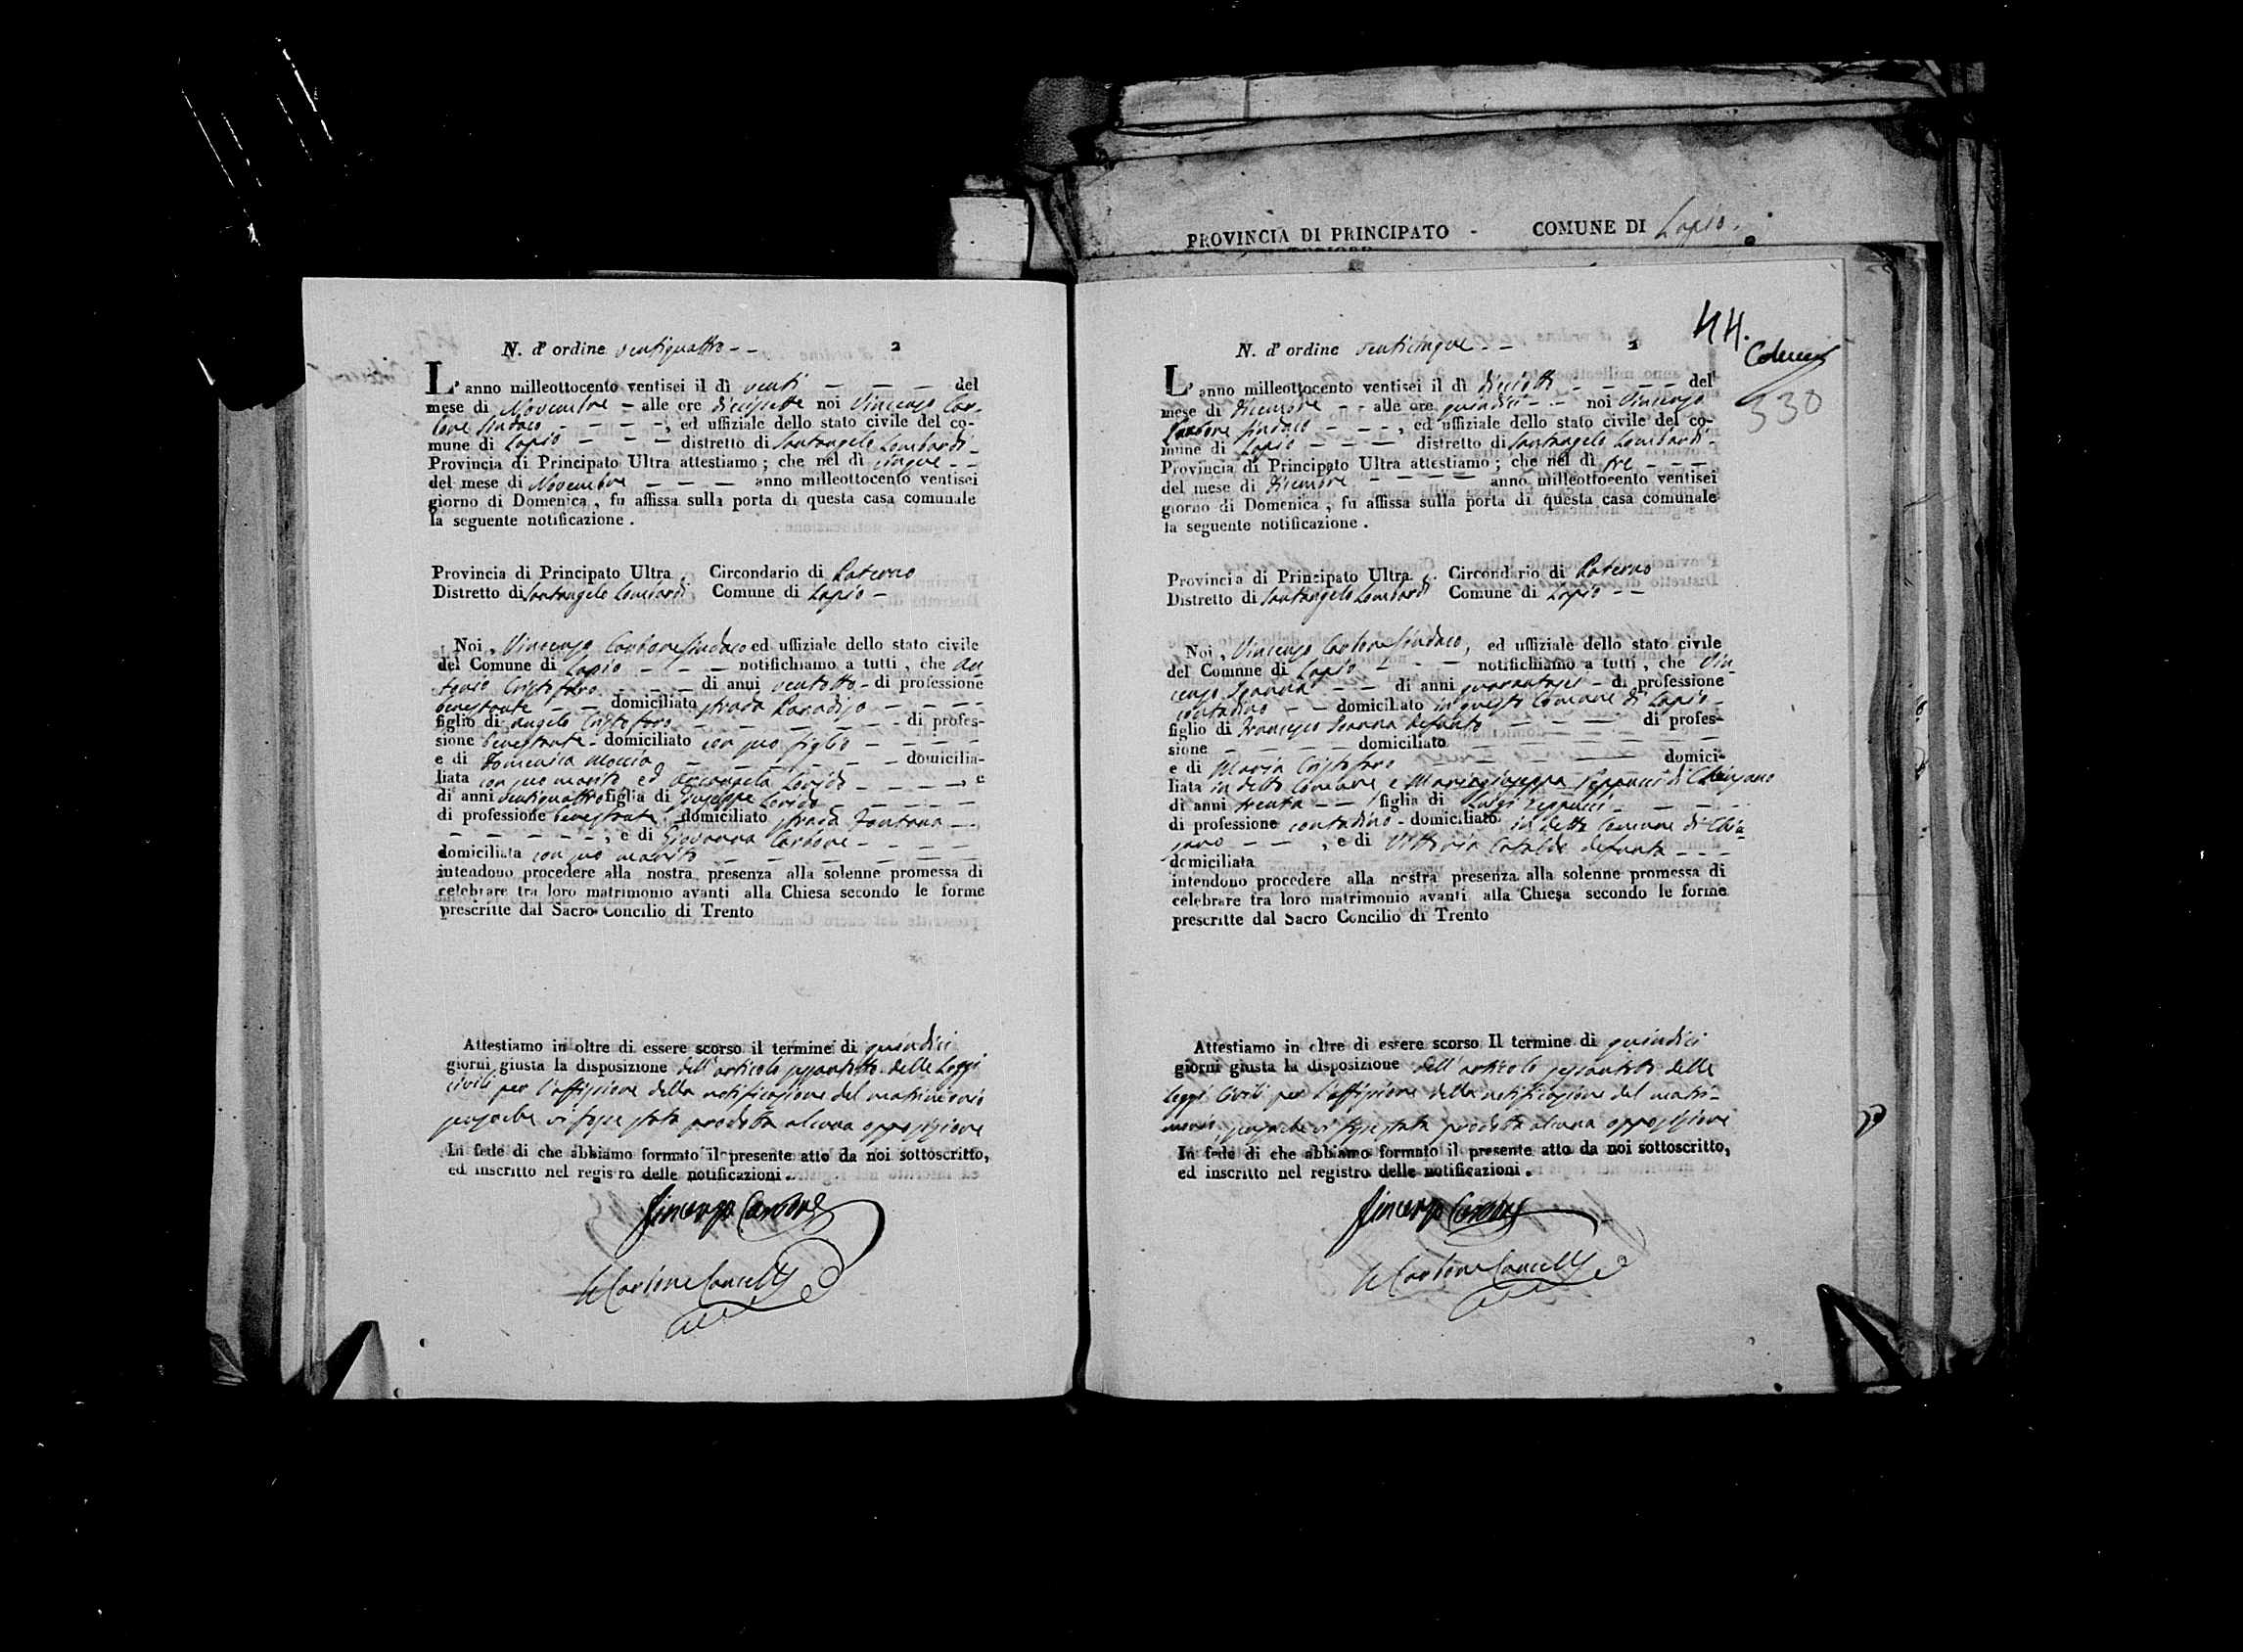 PROVINCIA DI PRINCIPATO - COMUNE DI Lapio.
N. d' ordine ventiquattro - - 2
L' anno milleottocento ventisei il dì venti — — — del
mese di Novembre - alle ore diecisette noi Vincenzo Car-
bone Sindaco - - - -, ed uffiziale dello stato civile del co-
mune di Lapio - - - distretto di Santangelo Lombardi -
Provincia di Principato Ultra attestiamo ; che nel dì cinque - -
del mese di Novembre — — — anno milleottocento ventisei
giorno di Domenica , fu affissa sulla porta di questa casa comunale
la seguente notificazione .
Provincia di Principato Ultra . Circondario di Paterno
Distretto di Santangelo Lombardi Comune di Lapio -
Noi , Vincenzo Carbone Sindaco ed uffiziale dello stato civile
del Comune di Lapio - - - notifichiamo a tutti , che An
tonio Cristofaro - - - - di anni ventotto - di professione
benestante - - domiciliato strada Paradiso - - - -
figlio di Angelo Cristofaro - - - - - - di profes-
sione benestante - domiciliato con suo figlio - - - -
e di Domenica Moccia - - - - - - domicilia-
liata con suo marito ed Arcangela - - - - e
di anni ventiquattro figlia di Giuseppe - - - -
di professione benestante . domiciliato strada Fontana - -
- - - - - , e di Giovanna Carbone - - - - -
domiciliata con suo marito - - - - - -
intendono procedere alla nostra presenza alla solenne promessa di
celebrare tra loro matrimonio avanti alla Chiesa secondo le forme
prescritte dal Sacro Concilio di Trento
Attestiamo in oltre di essere scorso il termine di quindici
giorni giusta la disposizione dell' articolo sessantotto delle Leggi
civili per l'affissione della notificazione del matrimonio
senzache vi fosse stata prodotta alcuna opposizione
In fede di che abbiamo formato il presente atto da noi sottoscritto,
ed inscritto nel registro delle notificazioni .
Vincenzo Carbone
Carbone Cancell
44.
330
N. d' ordine venticinque - - 2
L' anno milleottocento ventisei il dì diciotto - - - - del
mese di Dicembre - - alle ore quindici - - noi Vincenzo
Carbone Sindaco - - - -, ed uffiziale dello stato civile del co-
mune di Lapio - - - distretto di Santangelo Lombardi -
Provincia di Principato Ultra attestiamo ; che nel dì tre - - -
del mese di Dicembre - - - - anno milleottocento ventisei
giorno di Domenica , fu affissa sulla porta di questa casa comunale
la seguente notificazione .
Provincia di Principato Ultra . Circondario di Paterno
Distretto di Santangelo Lombardi Comune di Lapio - -
Noi , Vincenzo Carbone Sindaco, ed uffiziale dello stato civile
del Comune di Lapio - - - notifichiamo a tutti , che Vin-
cenzo - - di anni quarantasei - di professione
contadino - - domiciliato in questo Comune di Lapio -
figlio di Francesco defunto - - - di profes-
sione - - - - domiciliato - - - - -
e di Maria Cristofaro - - - - domici-
liata in detto Comune e Mariagiuseppa Zeppucci di Chiusano
di anni trenta - - figlia di Luigi Zeppucci - - - -
di professione contadino - domiciliato in detto Comune di Chiu-
sano - - , e di Vittoria Cataldo defunta - - -
domiciliata
intendono procedere alla nostra presenza alla solenne promessa di
celebrare tra loro matrimonio avanti alla Chiesa secondo le forme
prescritte dal Sacro Concilio di Trento
Attestiamo in oltre di essere scorso Il termine di quindici
giorni giusta la disposizione dell' articolo sessantotto delle
Leggi Civili per l'affissione della notificazione del matri-
monio, senzache vi fosse stata prodotta alcuna opposizione
In fede di che abbiamo formato il presente atto da noi sottoscritto,
ed inscritto nel registro delle notificazioni .
Vincenzo Carbone
Carbone Cancell